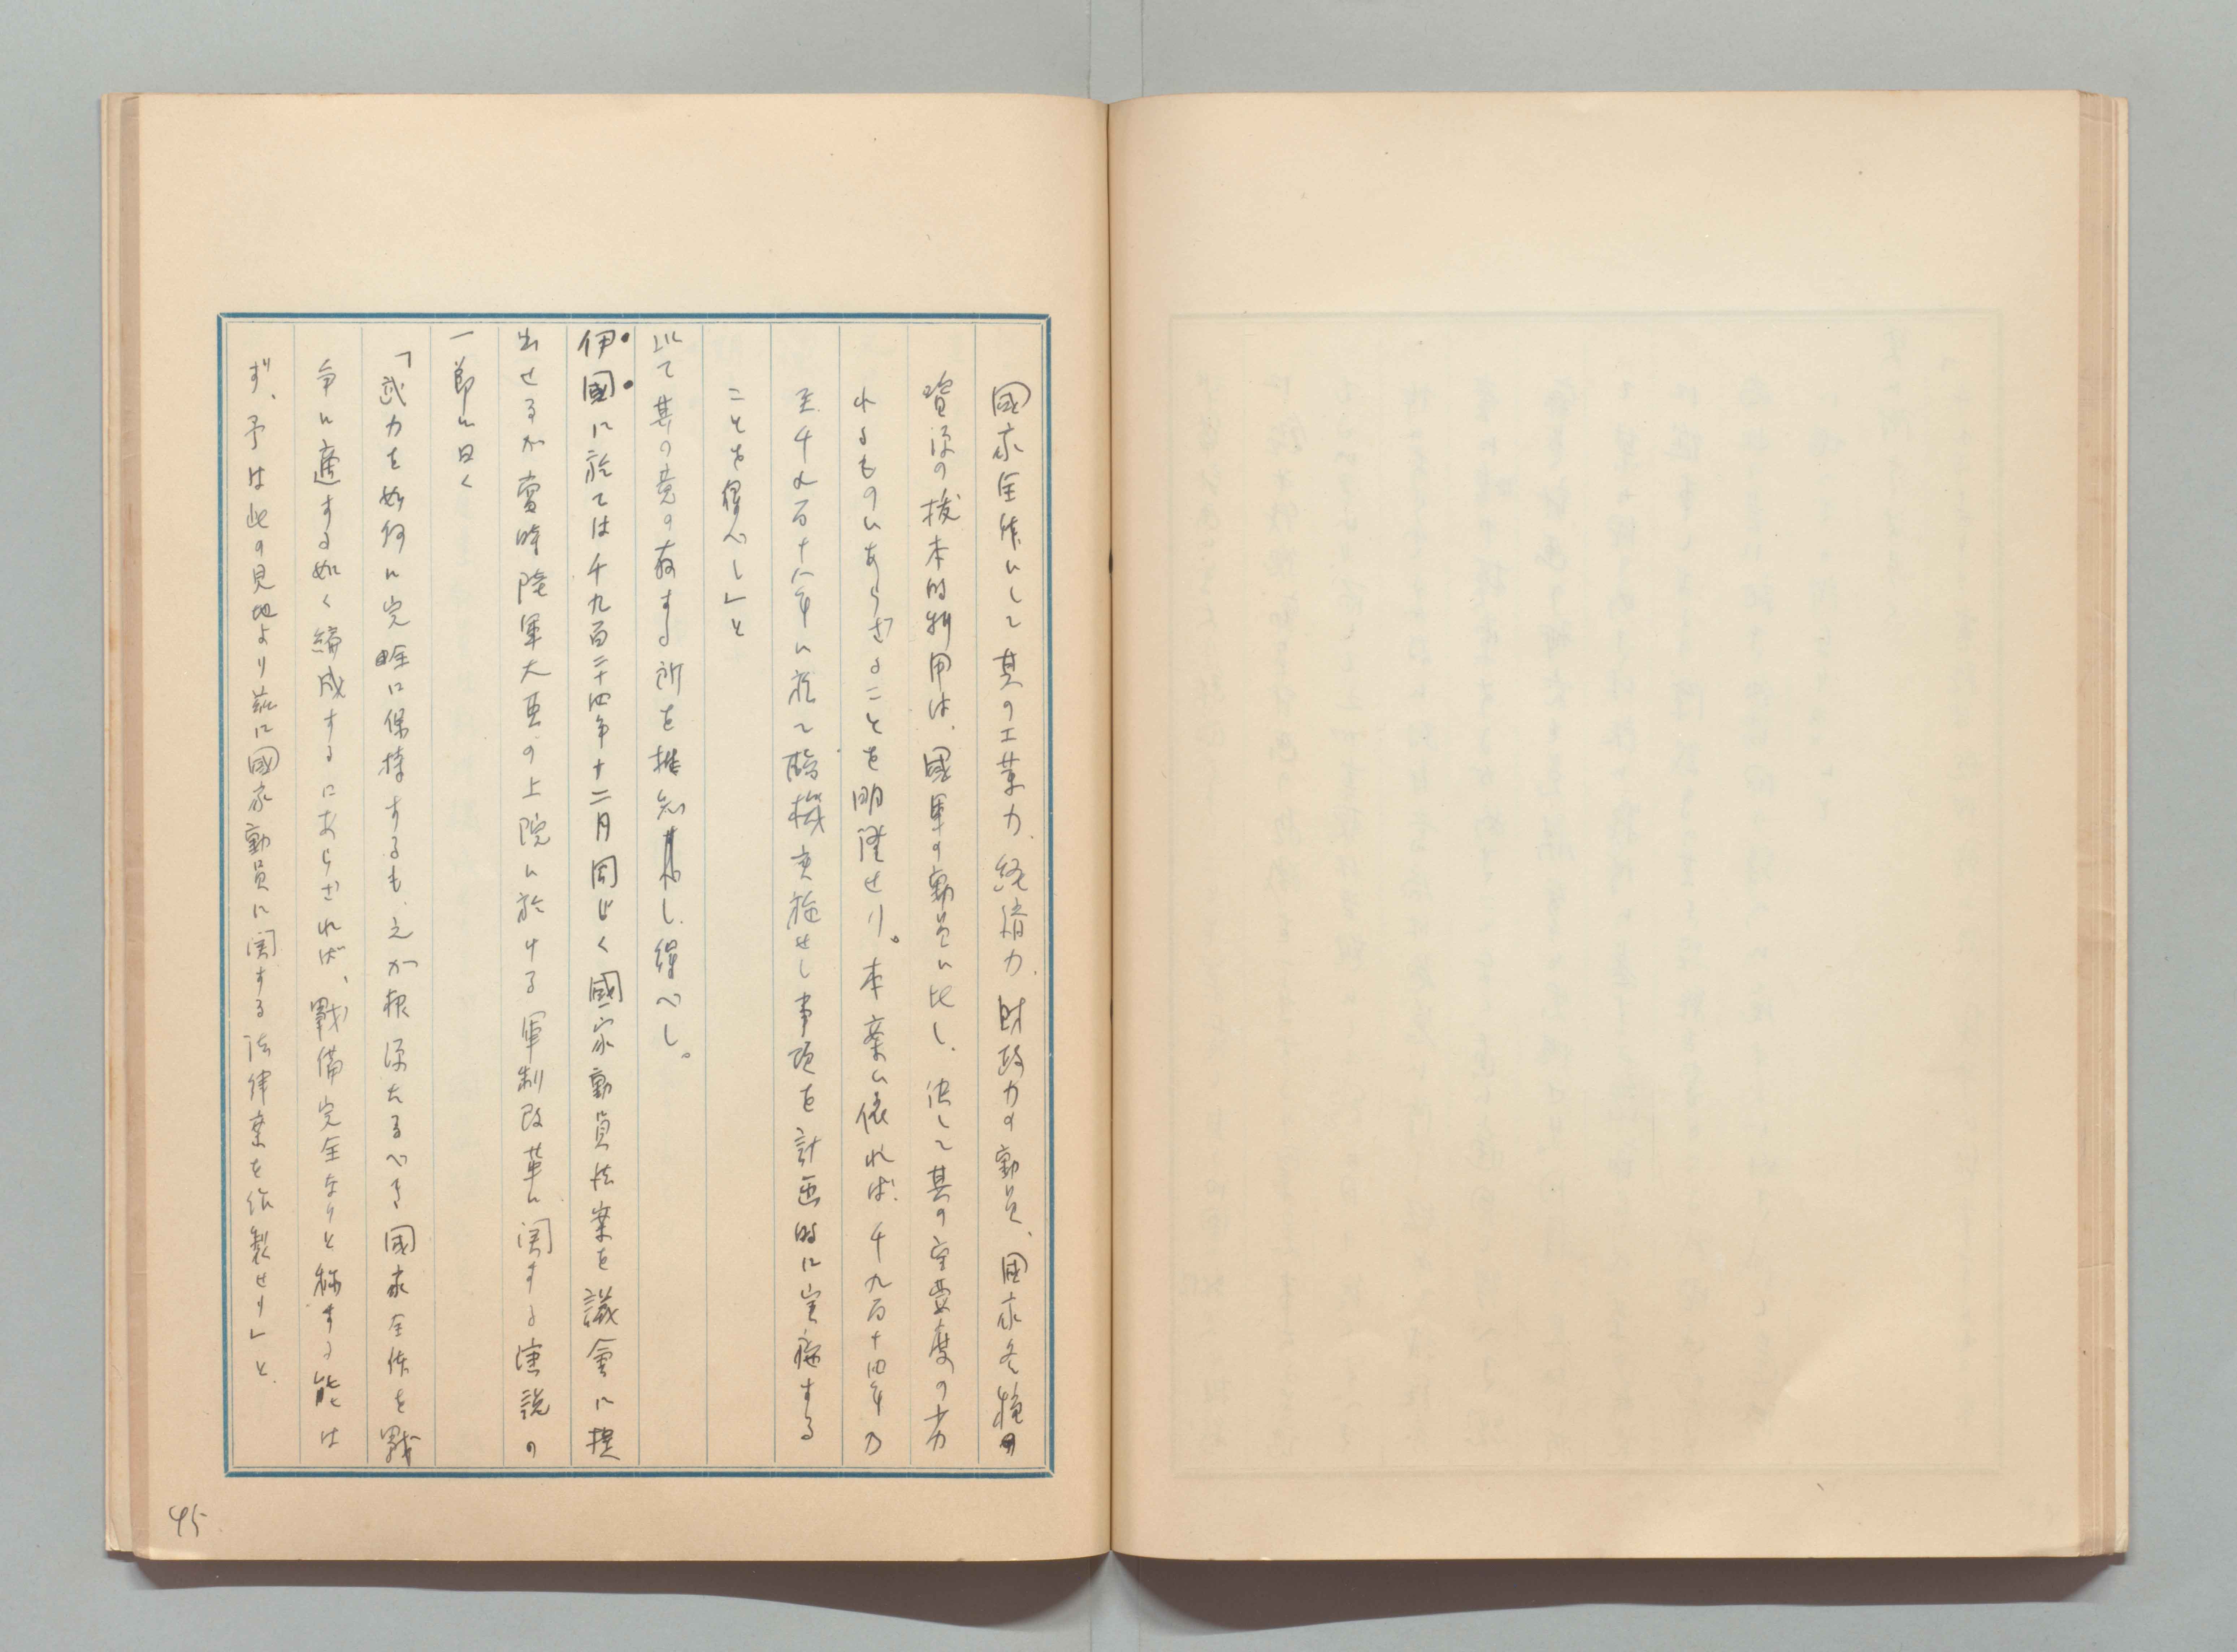 國家全体にして其の工業力、経済力、財政力の動員、國家各種の
資源の抜本的利用は、國軍の動員に比し、決して其の重要度の劣
れるものにあらざることを明確せり。本案に依れば、千九百十四年乃
至千九百十八年に於て臨機実施せし事項を計画的に実施する
ことを得べし」と
以て其の意の存する所を推知し得べし。
伊國に於ては千九百二十四年十二月同じく國家動員法案を議会に提
出せるが當時陸軍大臣の上院に於ける軍制改革に関する演説の
一節に曰く
「武力を如何に完全に保持するも、之が根源たるべき國家全体を戰
争に適する如く編成するにあらざれば、戰備完全なりと称する能は
ず、予は此の見地より茲に國家動員に関する法律案を作製せり」と、
45